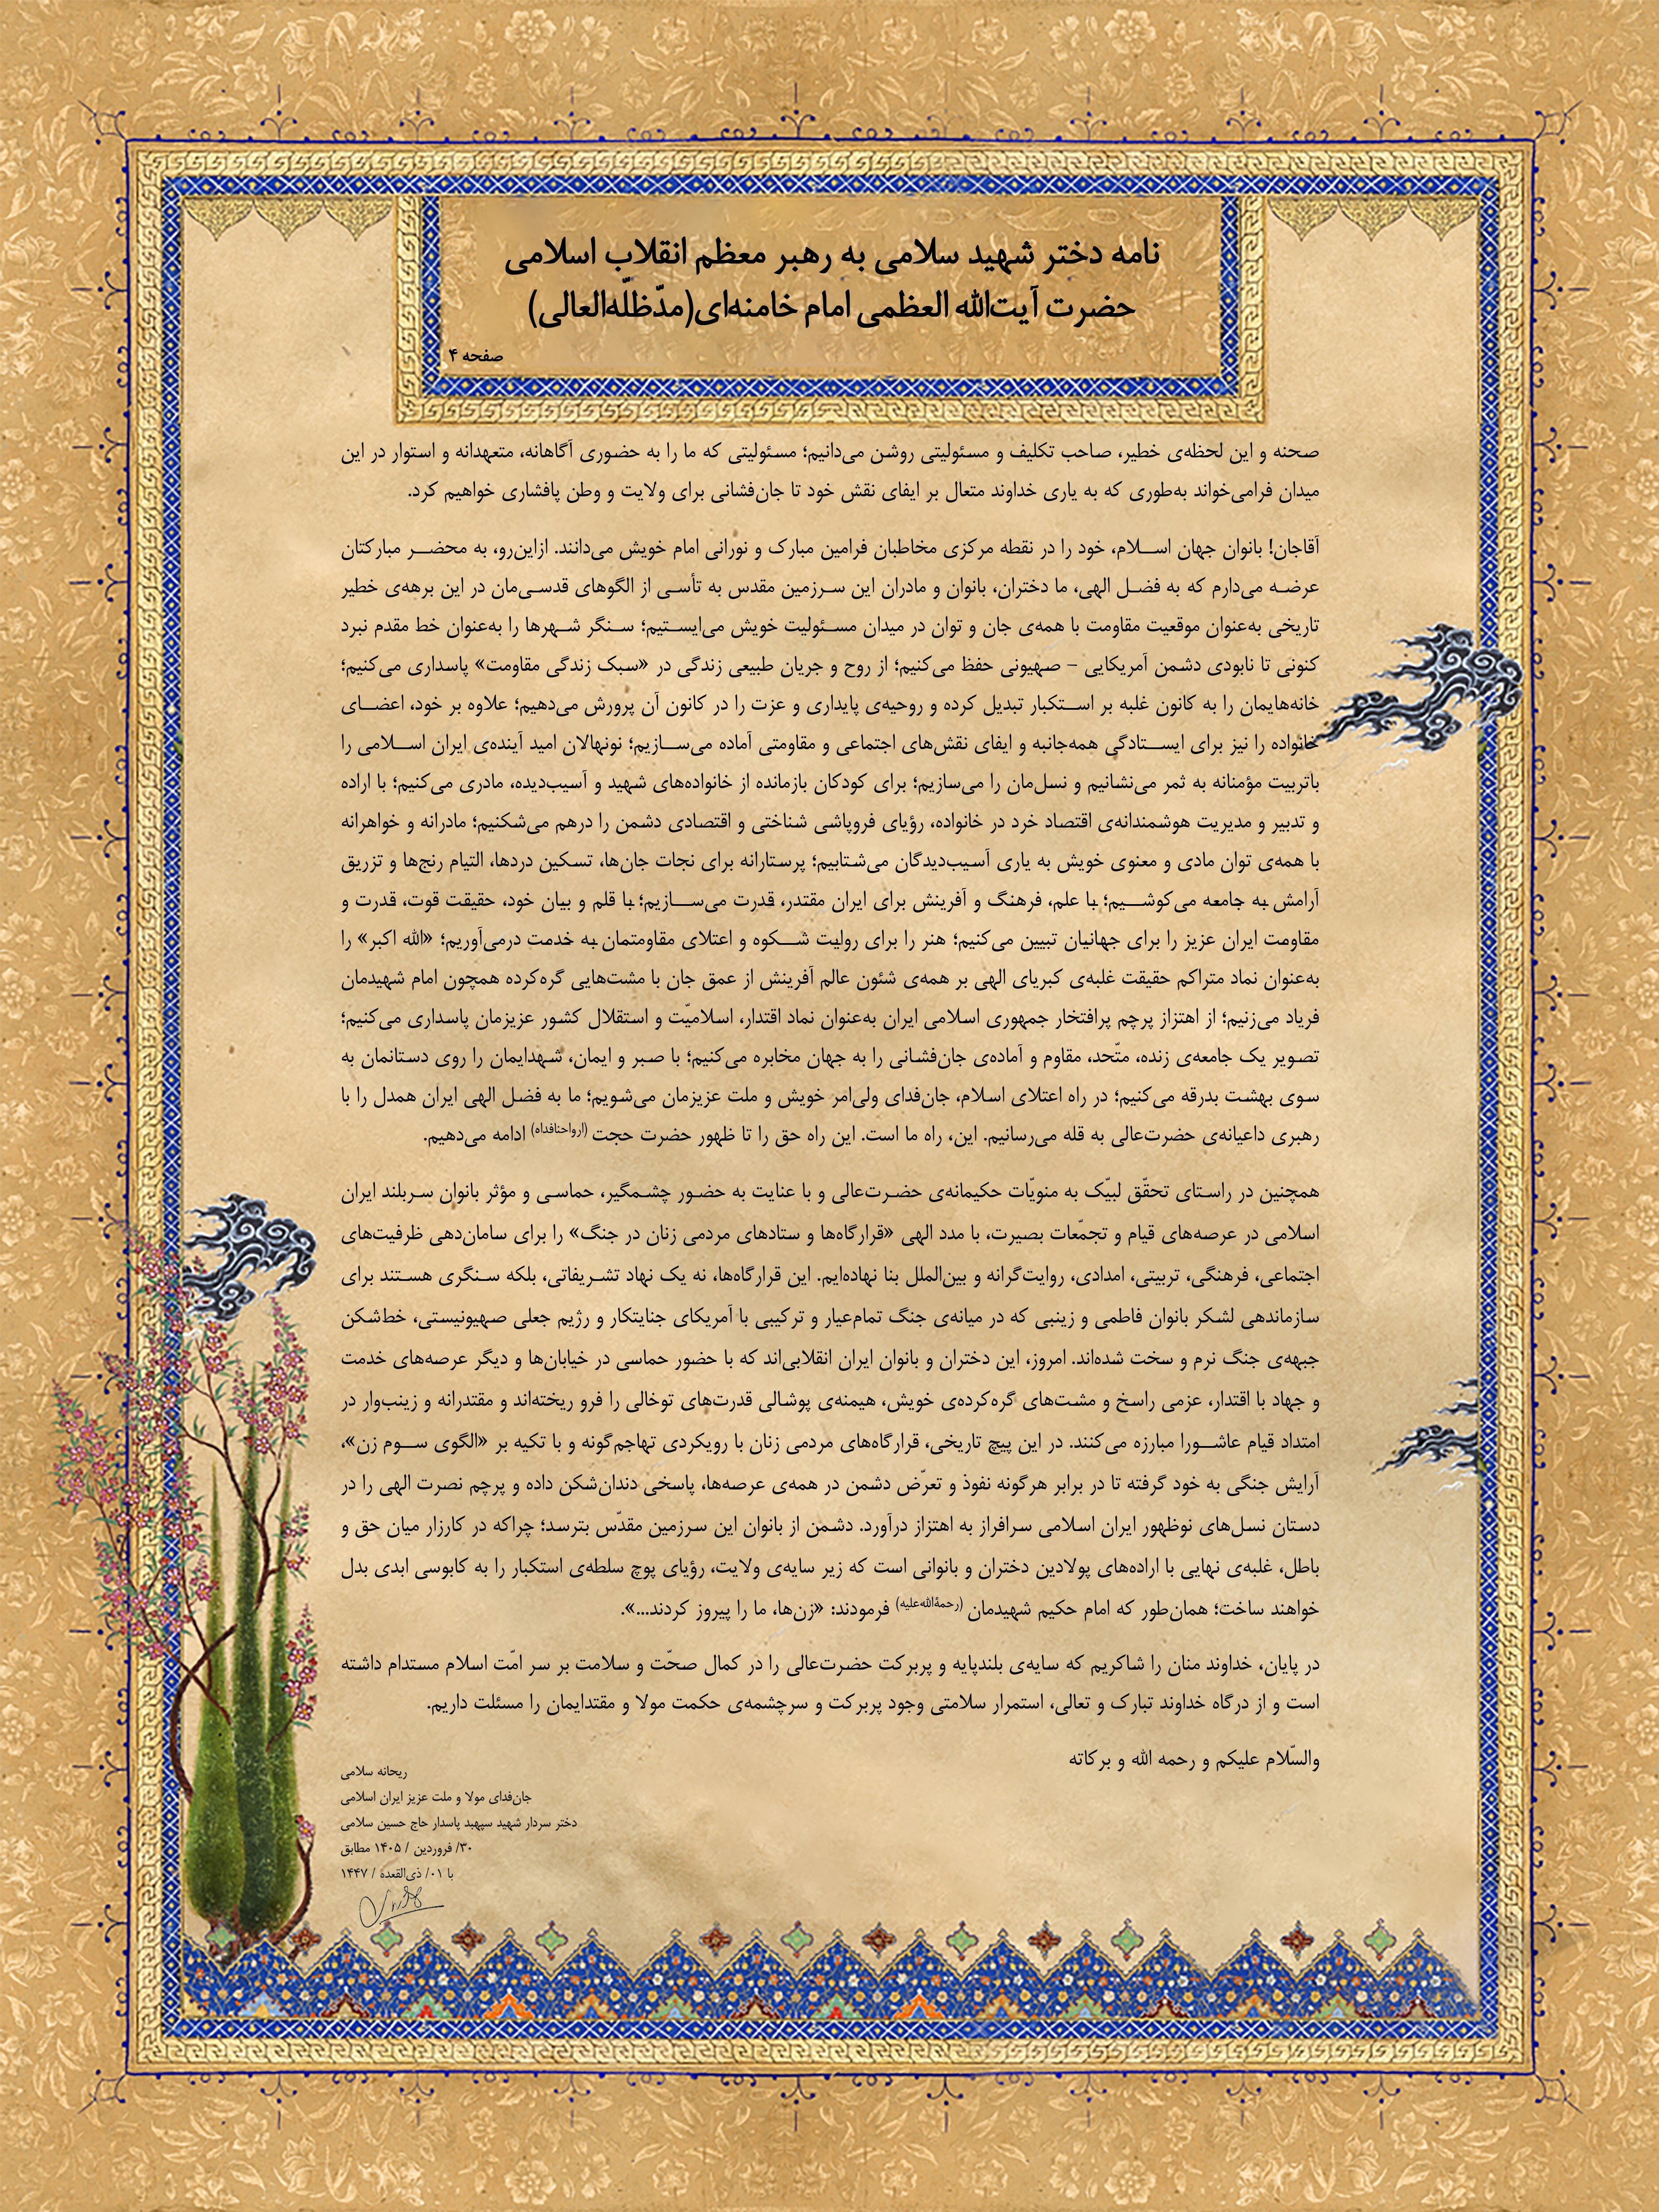 نامه دختر شهید سلامی به رهبر معظم انقلاب اسلامی
حضرت آیت‌الله العظمی امام خامنه‌ای(مدّظلّه‌العالی)
صفحه ۴
صحنه و این لحظه‌ی خطیر، صاحب تکلیف و مسئولیتی روشن می‌دانیم؛ مسئولیتی که ما را به حضوری آگاهانه، متعهدانه و استوار در این
میدان فرامی‌خواند به‌طوری که به یاری خداوند متعال بر ایفای نقش خود تا جان‌فشانی برای ولایت و وطن پافشاری خواهیم کرد.
آقاجان! بانوان جهان اسلام، خود را در نقطه مرکزی مخاطبان فرامین مبارک و نورانی امام خویش می‌دانند. ازاین‌رو، به محضر مبارکتان
عرضه می‌دارم که به فضل الهی، ما دختران، بانوان و مادران این سرزمین مقدس به تأسی از الگوهای قدسی‌مان در این برهه‌ی خطیر
تاریخی به‌عنوان موقعیت مقاومت با همه‌ی جان و توان در میدان مسئولیت خویش می‌ایستیم؛ سنگر شهرها را به‌عنوان خط مقدم نبرد
کنونی تا نابودی دشمن آمریکایی – صهیونی حفظ می‌کنیم؛ از روح و جریان طبیعی زندگی در «سبک زندگی مقاومت» پاسداری می‌کنیم؛
خانه‌هایمان را به کانون غلبه بر استکبار تبدیل کرده و روحیه‌ی پایداری و عزت را در کانون آن پرورش می‌دهیم؛ علاوه بر خود، اعضای
خانواده را نیز برای ایستادگی همه‌جانبه و ایفای نقش‌های اجتماعی و مقاومتی آماده می‌سازیم؛ نونهالان امید آینده‌ی ایران اسلامی را
باتربیت مؤمنانه به ثمر می‌نشانیم و نسل‌مان را می‌سازیم؛ برای کودکان بازمانده از خانواده‌های شهید و آسیب‌دیده، مادری می‌کنیم؛ با اراده
و تدبیر و مدیریت هوشمندانه‌ی اقتصاد خرد در خانواده، رؤیای فروپاشی شناختی و اقتصادی دشمن را درهم می‌شکنیم؛ مادرانه و خواهرانه
با همه‌ی توان مادی و معنوی خویش به یاری آسیب‌دیدگان می‌شتابیم؛ پرستارانه برای نجات جان‌ها، تسکین دردها، التیام رنج‌ها و تزریق
آرامش به جامعه می‌کوشیم؛ با علم، فرهنگ و آفرینش برای ایران مقتدر، قدرت می‌سازیم؛ با قلم و بیان خود، حقیقت قوت، قدرت و
مقاومت ایران عزیز را برای جهانیان تبیین می‌کنیم؛ هنر را برای رولیت شکوه و اعتلای مقاومتمان به خدمت درمی‌آوریم؛ «الله اکبر» را
به‌عنوان نماد متراکم حقیقت غلبه‌ی کبریای الهی بر همه‌ی شئون عالم آفرینش از عمق جان با مشت‌هایی گره‌کرده همچون امام شهیدمان
فریاد می‌زنیم؛ از اهتزاز پرچم پرافتخار جمهوری اسلامی ایران به‌عنوان نماد اقتدار، اسلامیّت و استقلال کشور عزیزمان پاسداری می‌کنیم؛
تصویر یک جامعه‌ی زنده، متّحد، مقاوم و آماده‌ی جان‌فشانی را به جهان مخابره می‌کنیم؛ با صبر و ایمان، شهدایمان را روی دستانمان به
سوی بهشت بدرقه می‌کنیم؛ در راه اعتلای اسلام، جان‌فدای ولی‌امر خویش و ملت عزیزمان می‌شویم؛ ما به فضل الهی ایران همدل را با
رهبری داعیانه‌ی حضرت‌عالی به قله می‌رسانیم. این، راه ما است. این راه حق را تا ظهور حضرت حجت (ارواحنافداه) ادامه می‌دهیم.
همچنین در راستای تحقّق لبیّک به منویّات حکیمانه‌ی حضرت‌عالی و با عنایت به حضور چشمگیر، حماسی و مؤثر بانوان سربلند ایران
اسلامی در عرصه‌های قیام و تجمّعات بصیرت، با مدد الهی «قرارگاه‌ها و ستادهای مردمی زنان در جنگ» را برای سامان‌دهی ظرفیت‌های
اجتماعی، فرهنگی، تربیتی، امدادی، روایت‌گرانه و بین‌الملل بنا نهاده‌ایم. این قرارگاه‌ها، نه یک نهاد تشریفاتی، بلکه سنگری هستند برای
سازماندهی لشکر بانوان فاطمی و زینبی که در میانه‌ی جنگ تمام‌عیار و ترکیبی با آمریکای جنایتکار و رژیم جعلی صهیونیستی، خط‌شکن
جبهه‌ی جنگ نرم و سخت شده‌اند. امروز، این دختران و بانوان ایران انقلابی‌اند که با حضور حماسی در خیابان‌ها و دیگر عرصه‌های خدمت
و جهاد با اقتدار، عزمی راسخ و مشت‌های گره‌کرده‌ی خویش، هیمنه‌ی پوشالی قدرت‌های توخالی را فرو ریخته‌اند و مقتدرانه و زینب‌وار در
امتداد قیام عاشورا مبارزه می‌کنند. در این پیچ تاریخی، قرارگاه‌های مردمی زنان با رویکردی تهاجم‌گونه و با تکیه بر «الگوی سوم زن»،
آرایش جنگی به خود گرفته تا در برابر هرگونه نفوذ و تعرّض دشمن در همه‌ی عرصه‌ها، پاسخی دندان‌شکن داده و پرچم نصرت الهی را در
دستان نسل‌های نوظهور ایران اسلامی سرافراز به اهتزاز درآورد. دشمن از بانوان این سرزمین مقدّس بترسد؛ چراکه در کارزار میان حق و
باطل، غلبه‌ی نهایی با اراده‌های پولادین دختران و بانوانی است که زیر سایه‌ی ولایت، رؤیای پوچ سلطه‌ی استکبار را به کابوسی ابدی بدل
خواهند ساخت؛ همان‌طور که امام حکیم شهیدمان (رحمةالله‌علیه) فرمودند: «زن‌ها، ما را پیروز کردند...».
در پایان، خداوند منان را شاکریم که سایه‌ی بلندپایه و پربرکت حضرت‌عالی را در کمال صحّت و سلامت بر سر امّت اسلام مستدام داشته
است و از درگاه خداوند تبارک و تعالی، استمرار سلامتی وجود پربرکت و سرچشمه‌ی حکمت مولا و مقتدایمان را مسئلت داریم.
والسّلام علیکم و رحمه الله و برکاته
ریحانه سلامی
جان‌فدای مولا و ملت عزیز ایران اسلامی
دختر سردار شهید سپهبد پاسدار حاج حسین سلامی
۳۰/ فروردین / ۱۴۰۵ مطابق
با ۰۱/ ذی‌القعده / ۱۴۴۷